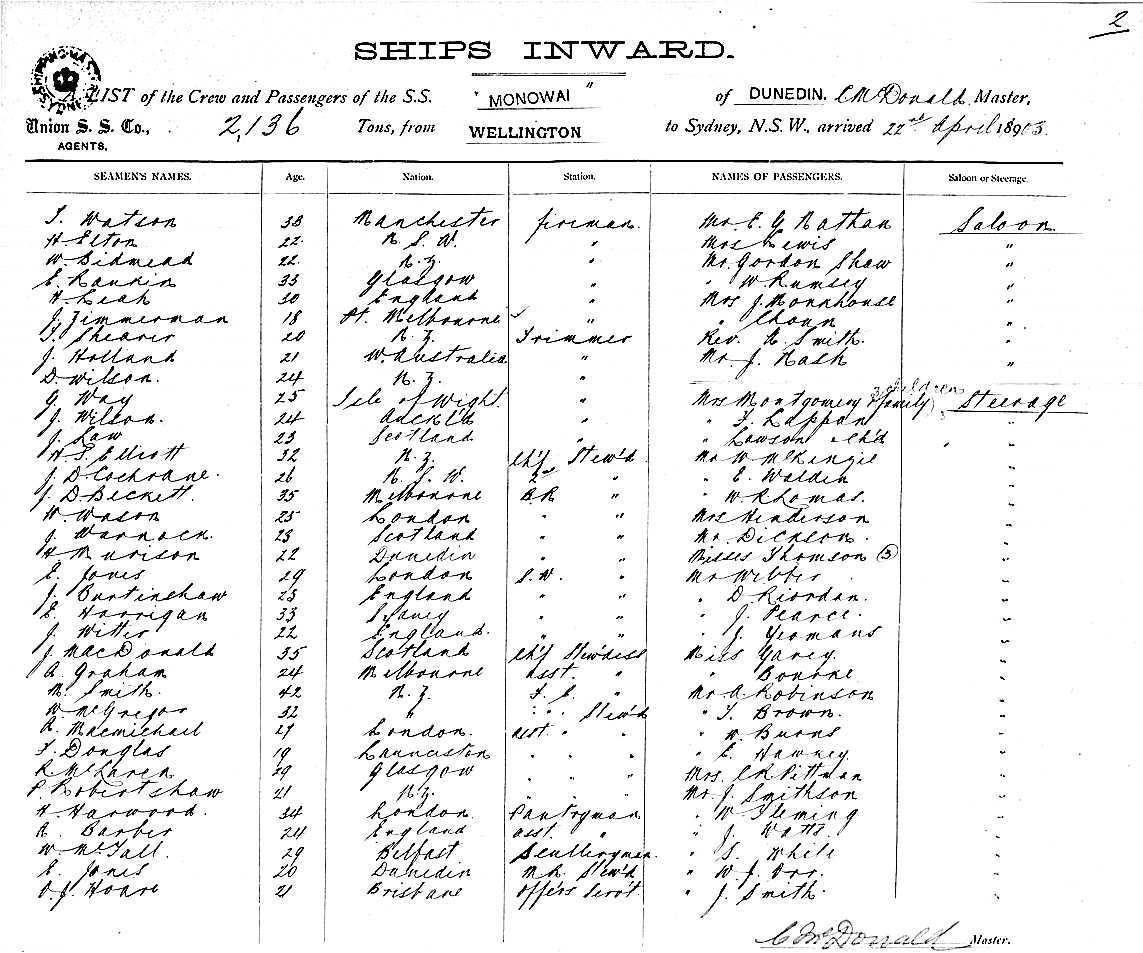 2
SHIPS INWARD.
SHIPPING MASTER SYDNEY
A LIST of the Crew and Passengers of the S.S. "MONOWAI" of DUNEDIN. C McDonald Master,
Union S. S. Co., 2,136 Tons, from WELLINGTON to Sydney, N.S.W., arrived 22nd April 1903
AGENTS,
SEAMEN'S NAMES. Age. Nation. Station. NAMES OF PASSENGERS. Saloon or Steerage.
T. Watson 38 Manchester fireman. Mr E. G Nathan Saloon
H Elton 22 N S. W. " Mrs Lewis "
W. Bidmead 22 N.Z. " Mr. Gordon Shaw "
E. Rankin 33 Glasgow " " W Rumsey "
H. Leah 30 England " Mrs J. Monkhouse "
J. Zimmerman 18 Pt. Melbourne " "
T. Shearer 20 N. Z. Trimmer Rev. A Smith. "
J. Holland 21 W. Australia " Mr. J. Nash "
D. Wilson. 24 N. Z. "
G Way 25 Isle of Wight. " Mrs Montgomery & family 3 children Steerage
J. Wilson. 24 Auckl'd " " T. Lappan "
J. Law 23 Scotland " " Lawson & Ch'd "
H S. Elliott 32 N. Z. Ch'f Stew'd Mr W McKenzie "
J. D Cochrane. 26 N. S. W. 2nd " " E. Walden "
J. D. Beckett. 35 Melbourne B.R " " W R Lomas. "
W. Wason 25 London " " Mrs Henderson "
J. Warnock. 23 Scotland " " Mr. Dickson. "
H Murison 22 Dunedin " " Misses Thomson (3) "
E. Jones 29 London S.W. " Mr Webber "
J. Burtinshaw 23 England " " " D. Riordan. "
E. Horrigan 33 Sydney " " " J. Pearce. "
J. Witter 22 England. " " " J. Yeomans "
J. MacDonald 35 Scotland Ch'f Stew'dess Miss Garey. "
A. Graham 24 Melbourne asst. " " Bourne "
M. Smith. 42 N. Z. F. C. " Mr. A. Robinson "
W. McGregor 32 " " " Stew'd " T. Brown. "
A. Macmichael 27 London. asst. " " " W Burns "
T. Douglas 19 Launceston " " " " E. Hawney "
R McLaren 29 Glasgow " " " Mrs. C R Pittman "
P. Robertshaw 21 N.Z. " " " Mr. J. Smithson "
H. Harwood. 34 London. Pantryman " W Fleming "
A. Barber 24 England asst. " " J. Watt. "
W. McFall. 29 Belfast Sculleryman. " S. White "
E. Jones 20 Dunedin M.R. Stew'd " W. J. Orr. "
O. J. Hoare 21 Brisbane Off'rs Serv't " J. Smith. "
C McDonald Master.